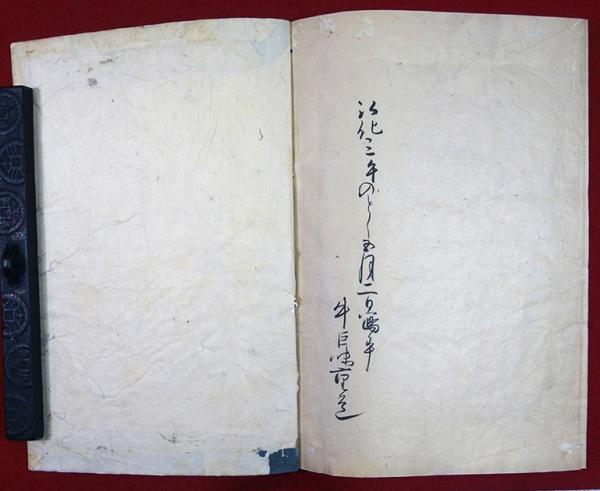 弘化三年のとし五月二日寫畢
牛